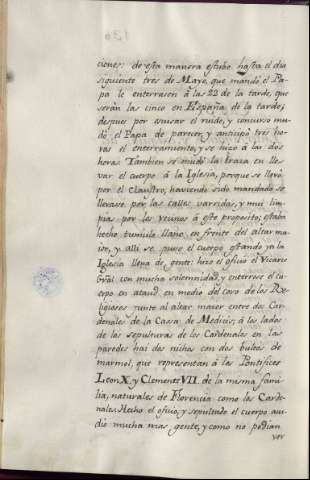 ciones: de esta manera estubo hasta el dia
siguiente tres de Mayo, que mandó el Pa-
pa le enterrasen á las 22 de la tarde, que
serán las cinco en España de la tarde;
despues por escusar el ruido, y concurso mu-
dó el Papa de parecer, y anticipó tres ho-
ras el enterramiento, y se hizo á las dos
horas. Tambien se mudó la traza en lle-
var el cuerpo á la Iglesia, porque se llevó
por el Claustro, haviendo sido mandado se
llevase por las calles varridas, y mui lim-
pias por los vecinos á este proposito; estaba
hecho tumulo llano, en frente del altar ma-
ior, y alli se puso el cuerpo estando ya la
Iglesia llena de gente: hizo el oficio el Vicario
Gral con mucha solemnidad, y enterrose el cu-
erpo en ataud en medio del Coro de los Re-
ligiosos junto al altar maior entre dos Car-
denales de la Casa de Medicis; á los lados
de las sepulturas de los Cardenales en las
paredes hai dos nichos con dos bultos de
marmol, que representan á los Pontifices
Leon X, y Clemente VII. de la misma fami-
lia, naturales de Florencia como los Carde-
nales. Hecho el oficio, y sepultado el cuerpo acu-
dio mucha mas gente, y como no podian
ver